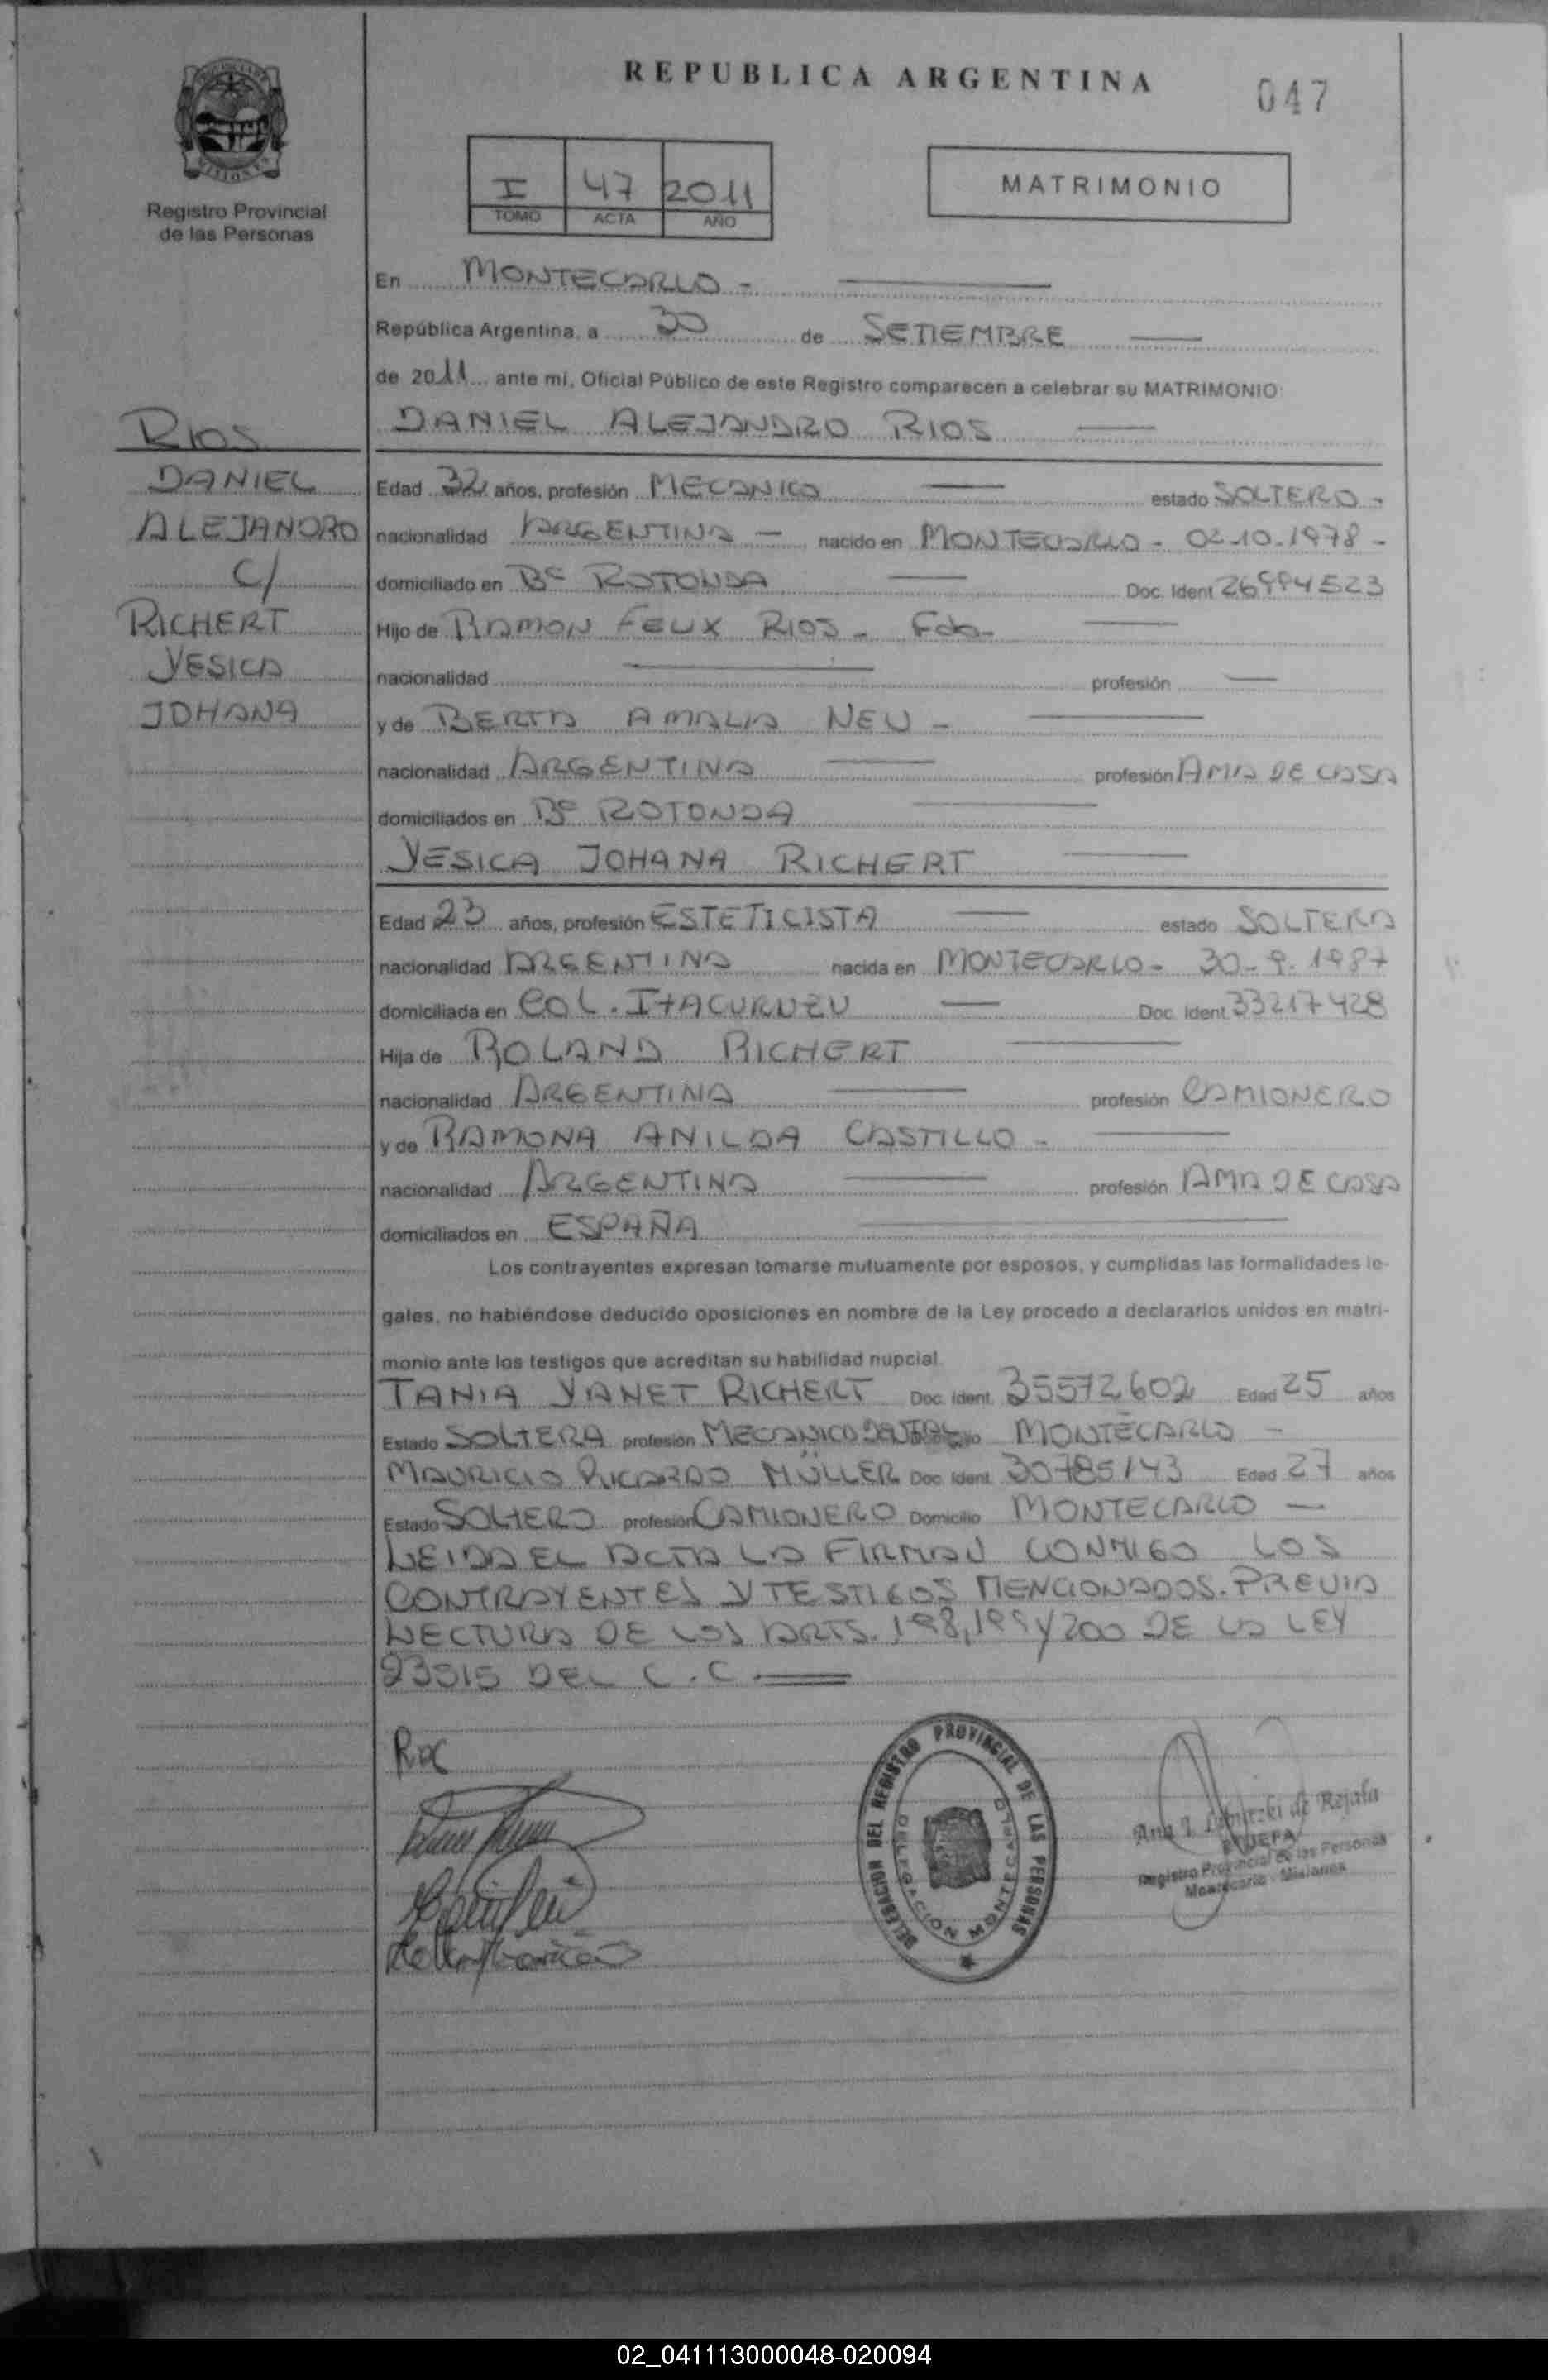 REPUBLICA ARGENTINA
047
Registro Provincial
de las Personas
I 47 2011
TOMO ACTA AÑO
MATRIMONIO
En MONTECARLO -
República Argentina, a 30 de SETIEMBRE
de 2011 ante mí, Oficial Público de este Registro comparecen a celebrar su MATRIMONIO:
RIOS
DANIEL
ALEJANDRO
C/
RICHERT
YESICA
JOHANA
DANIEL ALEJANDRO RIOS
Edad 32 años, profesión MECANICO estado SOLTERO -
nacionalidad ARGENTINA - nacido en MONTECARLO - 02-10-1978 -
domiciliado en Bº ROTONDA Doc. Ident 26994523
Hijo de RAMON FELIX RIOS - Fdo-
nacionalidad profesión
y de BERTA AMALIA NEU -
nacionalidad ARGENTINA profesión AMA DE CASA
domiciliados en Bº ROTONDA
YESICA JOHANA RICHERT
Edad 23 años, profesión ESTETICISTA estado SOLTERA
nacionalidad ARGENTINA nacida en MONTECARLO - 30-9-1987
domiciliada en COL. ITACURUZU Doc. Ident 33217428
Hija de ROLAND RICHERT
nacionalidad ARGENTINA profesión CAMIONERO
y de RAMONA ANILDA CASTILLO -
nacionalidad ARGENTINA profesión AMA DE CASA
domiciliados en ESPAÑA
Los contrayentes expresan tomarse mutuamente por esposos, y cumplidas las formalidades le-
gales, no habiéndose deducido oposiciones en nombre de la Ley procedo a declararlos unidos en matri-
monio ante los testigos que acreditan su habilidad nupcial.
TANIA YANET RICHERT Doc. Ident. 35572602 Edad 25 años
Estado SOLTERA profesión MECANICO DENTAL Domicilio MONTECARLO -
MAURICIO RICARDO MÜLLER Doc. Ident. 30785143 Edad 27 años
Estado SOLTERO profesión CAMIONERO Domicilio MONTECARLO -
LEIDA EL ACTA LA FIRMAN CONMIGO LOS
CONTRAYENTES Y TESTIGOS MENCIONADOS. PREVIA
LECTURA DE LOS ARTS. 198, 199 Y 200 DE LA LEY
23515 DEL C.C.
DELEGACION DEL REGISTRO PROVINCIAL DE LAS PERSONAS
DELEGACION MONTECARLO
Ana I. de Rejala
JEFA
Registro Provincial de las Personas
Montecarlo - Misiones
02_041113000048-020094